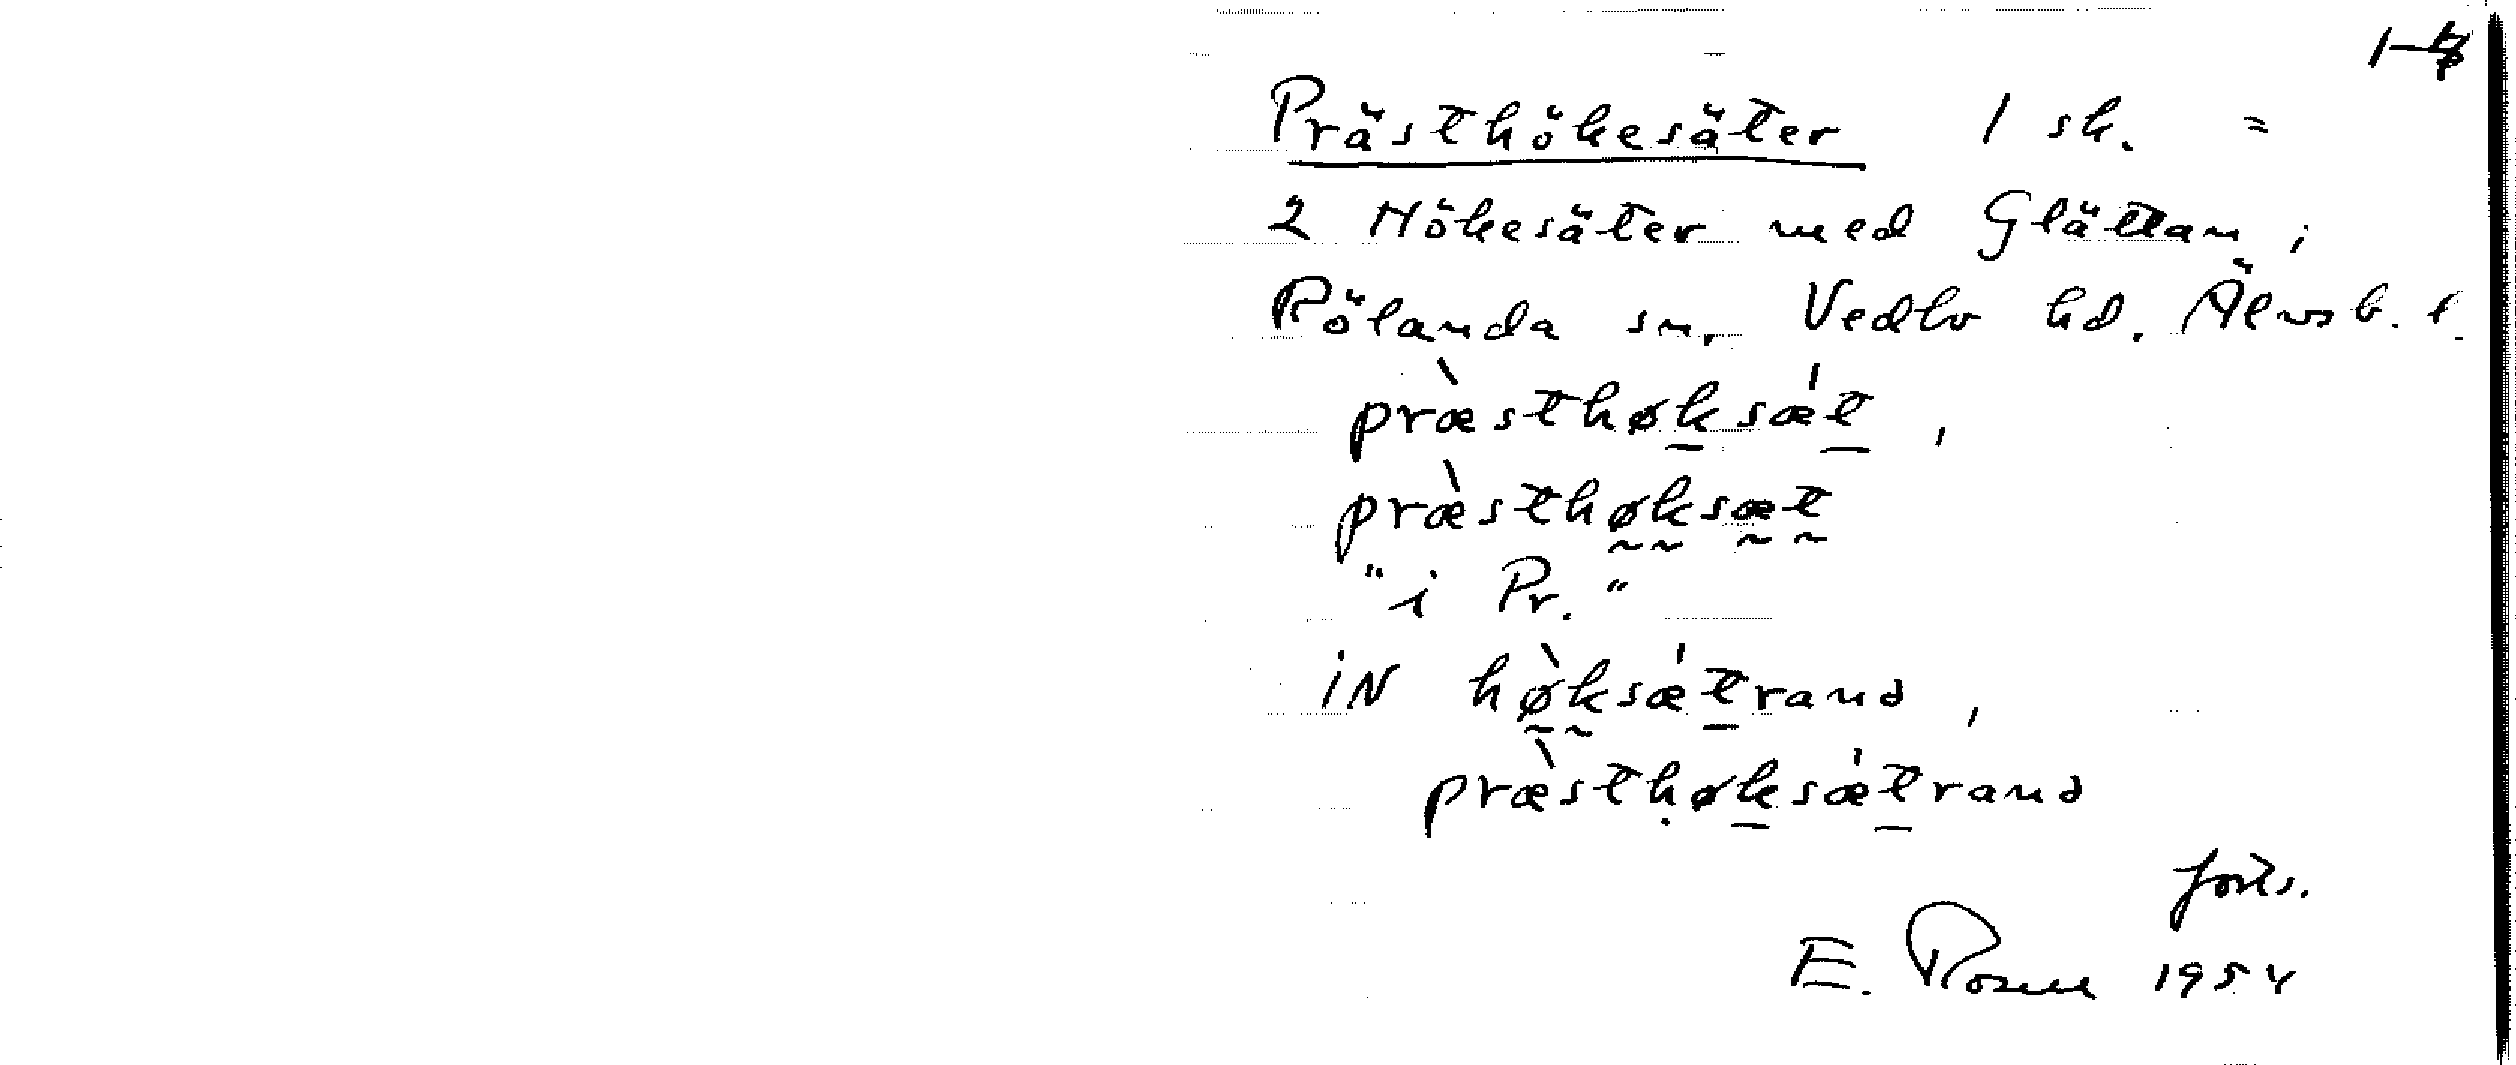 Prästhökesäter 1 sk. =
2 Hökesäter med Glättan i
Rölanda sn. Vedbo hd. Älvsb. l.
prὰsthøk̲sǽt̲,
præ̀sthø̰k̰sæ̰t̰
"i Pr."
iN hø̰̀k̰sǽt̲rand,
præ̀stḥøk̲sǽt̲rand
forts.
E. Rosell 1954